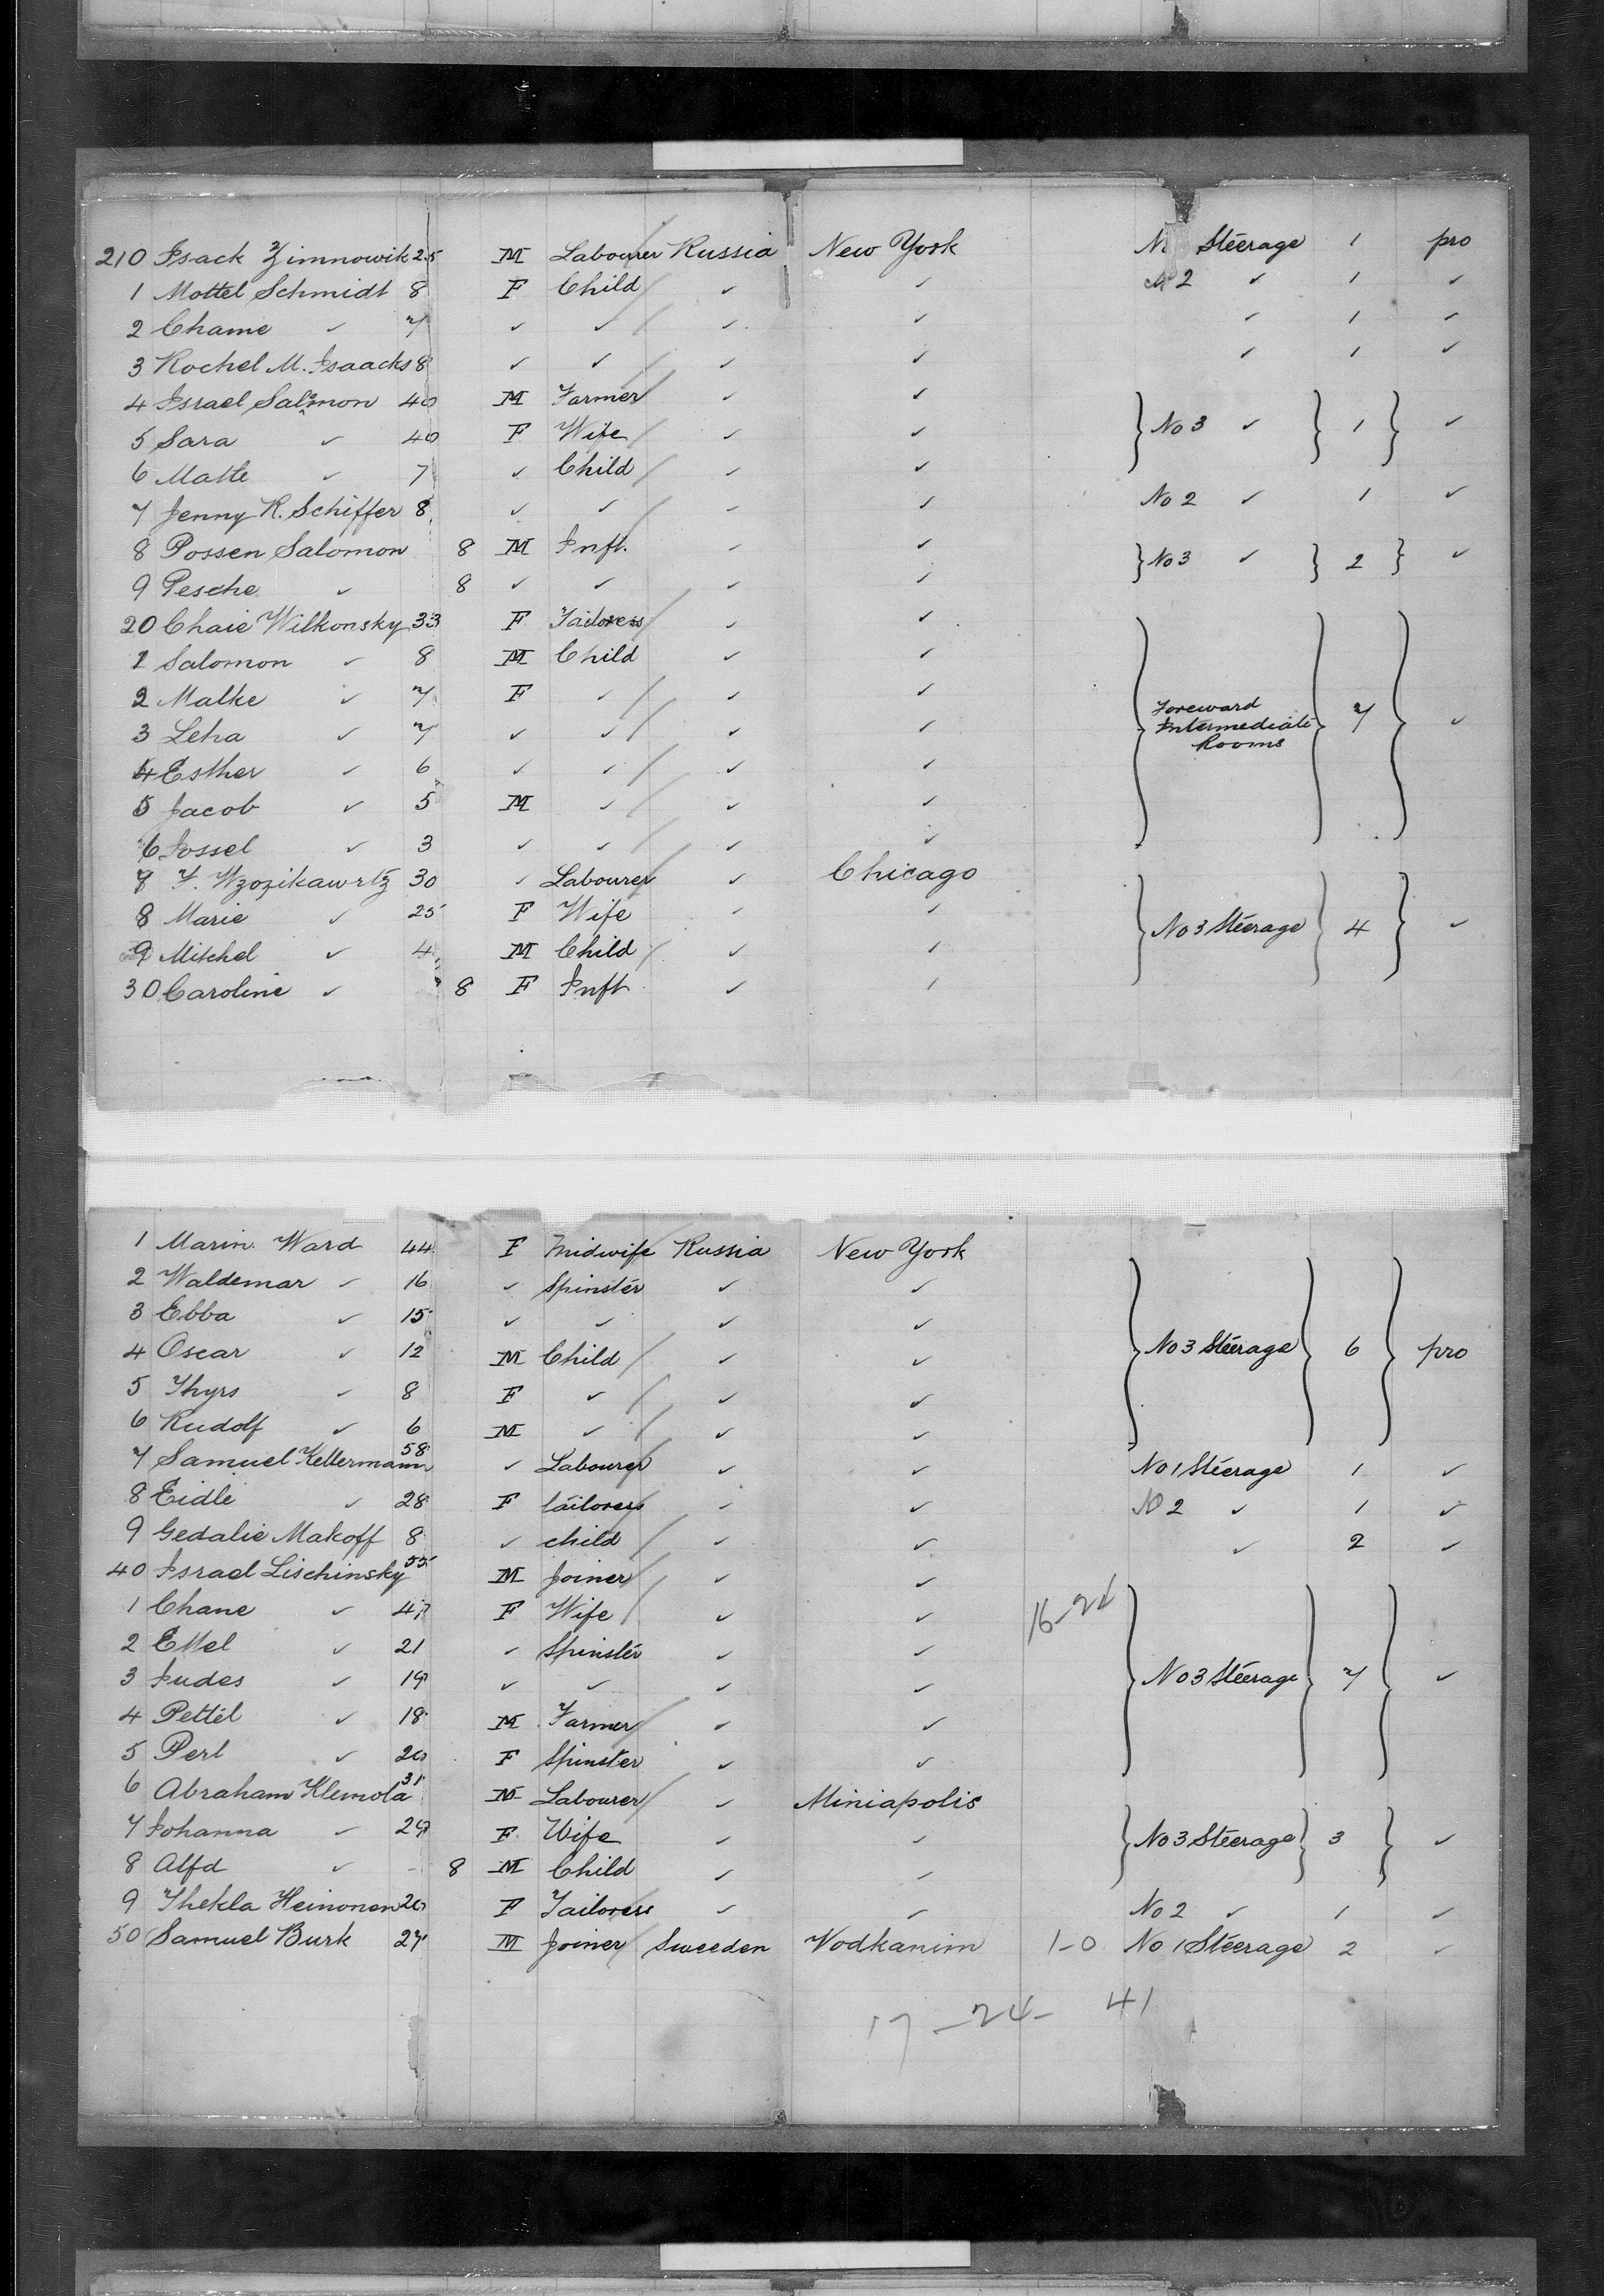 210 Isack Zimnowik 25 M Labourer Russia New York No Steerage 1 pro
1 Mottel Schmidt 8 F Child ✓ ✓ No 2 ✓ 1 ✓
2 Chame ✓ 7 ✓ ✓ ✓ ✓ ✓ 1 ✓
3 Rochel M. Isaacks 8 ✓ ✓ ✓ ✓ ✓ 1 ✓
4 Israel Salomon 40 M Farmer ✓ ✓
5 Sara ✓ 40 F Wife ✓ ✓ No 3 ✓ 1 ✓
6 Matte ✓ 7 ✓ Child ✓ ✓
7 Jenny R. Schiffer 8 ✓ ✓ ✓ ✓ No 2 ✓ 1 ✓
8 Possen Salomon 8 M Inft. ✓ ✓ No 3 ✓ 2 ✓
9 Pesche ✓ 8 ✓ ✓ ✓ ✓
20 Chaie Wilkonsky 33 F Tailoress ✓ ✓
1 Salomon ✓ 8 M Child ✓ ✓
2 Malke ✓ 7 F ✓ ✓ ✓
3 Leha ✓ 7 ✓ ✓ ✓ ✓ Foreward Intermediate Rooms 7 ✓
4 Esther ✓ 6 ✓ ✓ ✓ ✓
5 Jacob ✓ 5 M ✓ ✓ ✓
6 Jossel ✓ 3 ✓ ✓ ✓ ✓
7 F. Wzozikawrtz 30 ✓ Labourer ✓ Chicago
8 Marie ✓ 25 F Wife ✓ ✓ No 3 Steerage 4 ✓
9 Mitchel ✓ 4 M Child ✓ ✓
30 Caroline ✓ 8 F Inft ✓ ✓
1 Marin Ward 44 F Midwife Russia New York
2 Waldemar ✓ 16 ✓ Spinster ✓ ✓
3 Ebba ✓ 15 ✓ ✓ ✓ ✓
4 Oscar ✓ 12 M Child ✓ ✓ No 3 Steerage 6 pro
5 Thyrs ✓ 8 F ✓ ✓ ✓
6 Rudolf ✓ 6 M ✓ ✓ ✓
7 Samuel Kellermann 58 ✓ Labourer ✓ ✓ No 1 Steerage 1 ✓
8 Eidle ✓ 28 F tailoress ✓ ✓ No 2 ✓ 1 ✓
9 Gedalie Makoff 8 ✓ child ✓ ✓ ✓ 2 ✓
40 Israel Lischinsky 55 M Joiner ✓ ✓
1 Chane ✓ 47 F Wife ✓ ✓ 16-24
2 Ettel ✓ 21 ✓ Spinster ✓ ✓
3 Judes ✓ 19 ✓ ✓ ✓ ✓ No 3 Steerage 7 ✓
4 Pettel ✓ 18 M Farmer ✓ ✓
5 Perl ✓ 20 F Spinster ✓ ✓
6 Abraham Klemola 31 M Labourer ✓ Miniapolis
7 Johanna ✓ 29 F Wife ✓ ✓ No 3 Steerage 3 ✓
8 Alfd ✓ 8 M Child ✓ ✓
9 Thekla Heinonen 20 F Tailoress ✓ ✓ No 2 ✓ 1 ✓
50 Samuel Burk 27 M Joiner Sweeden Vodkanim 1-0 No 1 Steerage 2 ✓
17-24- 41